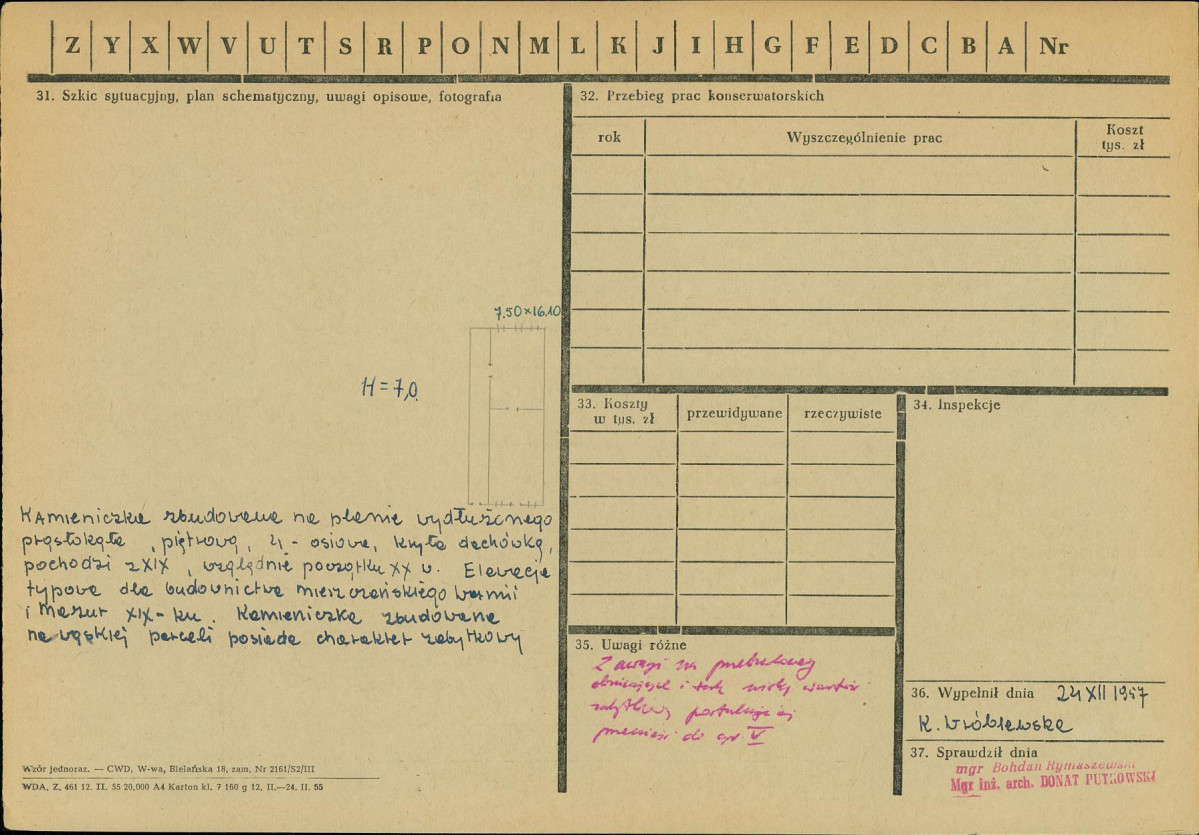 Z Y X W V U T S R P O N M L K J I H G F E D C B A Nr
31. Szkic sytuacyjny, plan schematyczny, uwagi opisowe, fotografia
7.50 × 16.10
H = 7,0
Kamieniczka zbudowana na planie wydłużonego
prostokąta, piętrowa, 4 - osiowa, kryta dachówką,
pochodzi z XIX, względnie początku XX w. Elewacja
typowa dla budownictwa mieszczańskiego Warmii
i Mazur XIX-ku. Kamieniczka zbudowana
na wąskiej parceli posiada charakter zabytkowy
Wzór jednoraz. — CWD, W-wa, Bielańska 18, zam. Nr 2161/S2/III
WDA, Z. 461 12. II. 55 20,000 A4 Karton kl. 7 160 g 12. II.—24. II. 55
32. Przebieg prac konserwatorskich
rok Wyszczególnienie prac Koszt tys. zł
33. Koszty w tys. zł przewidywane rzeczywiste
34. Inspekcje
35. Uwagi różne
Z uwagi na przebudowę
i
przenieść do gr. V
36. Wypełnił dnia 24 XII 1957
K. Wróblewska
37. Sprawdził dnia
mgr Bohdan Rymaszewski
Mgr inż. arch. DONAT PUTKOWSKI